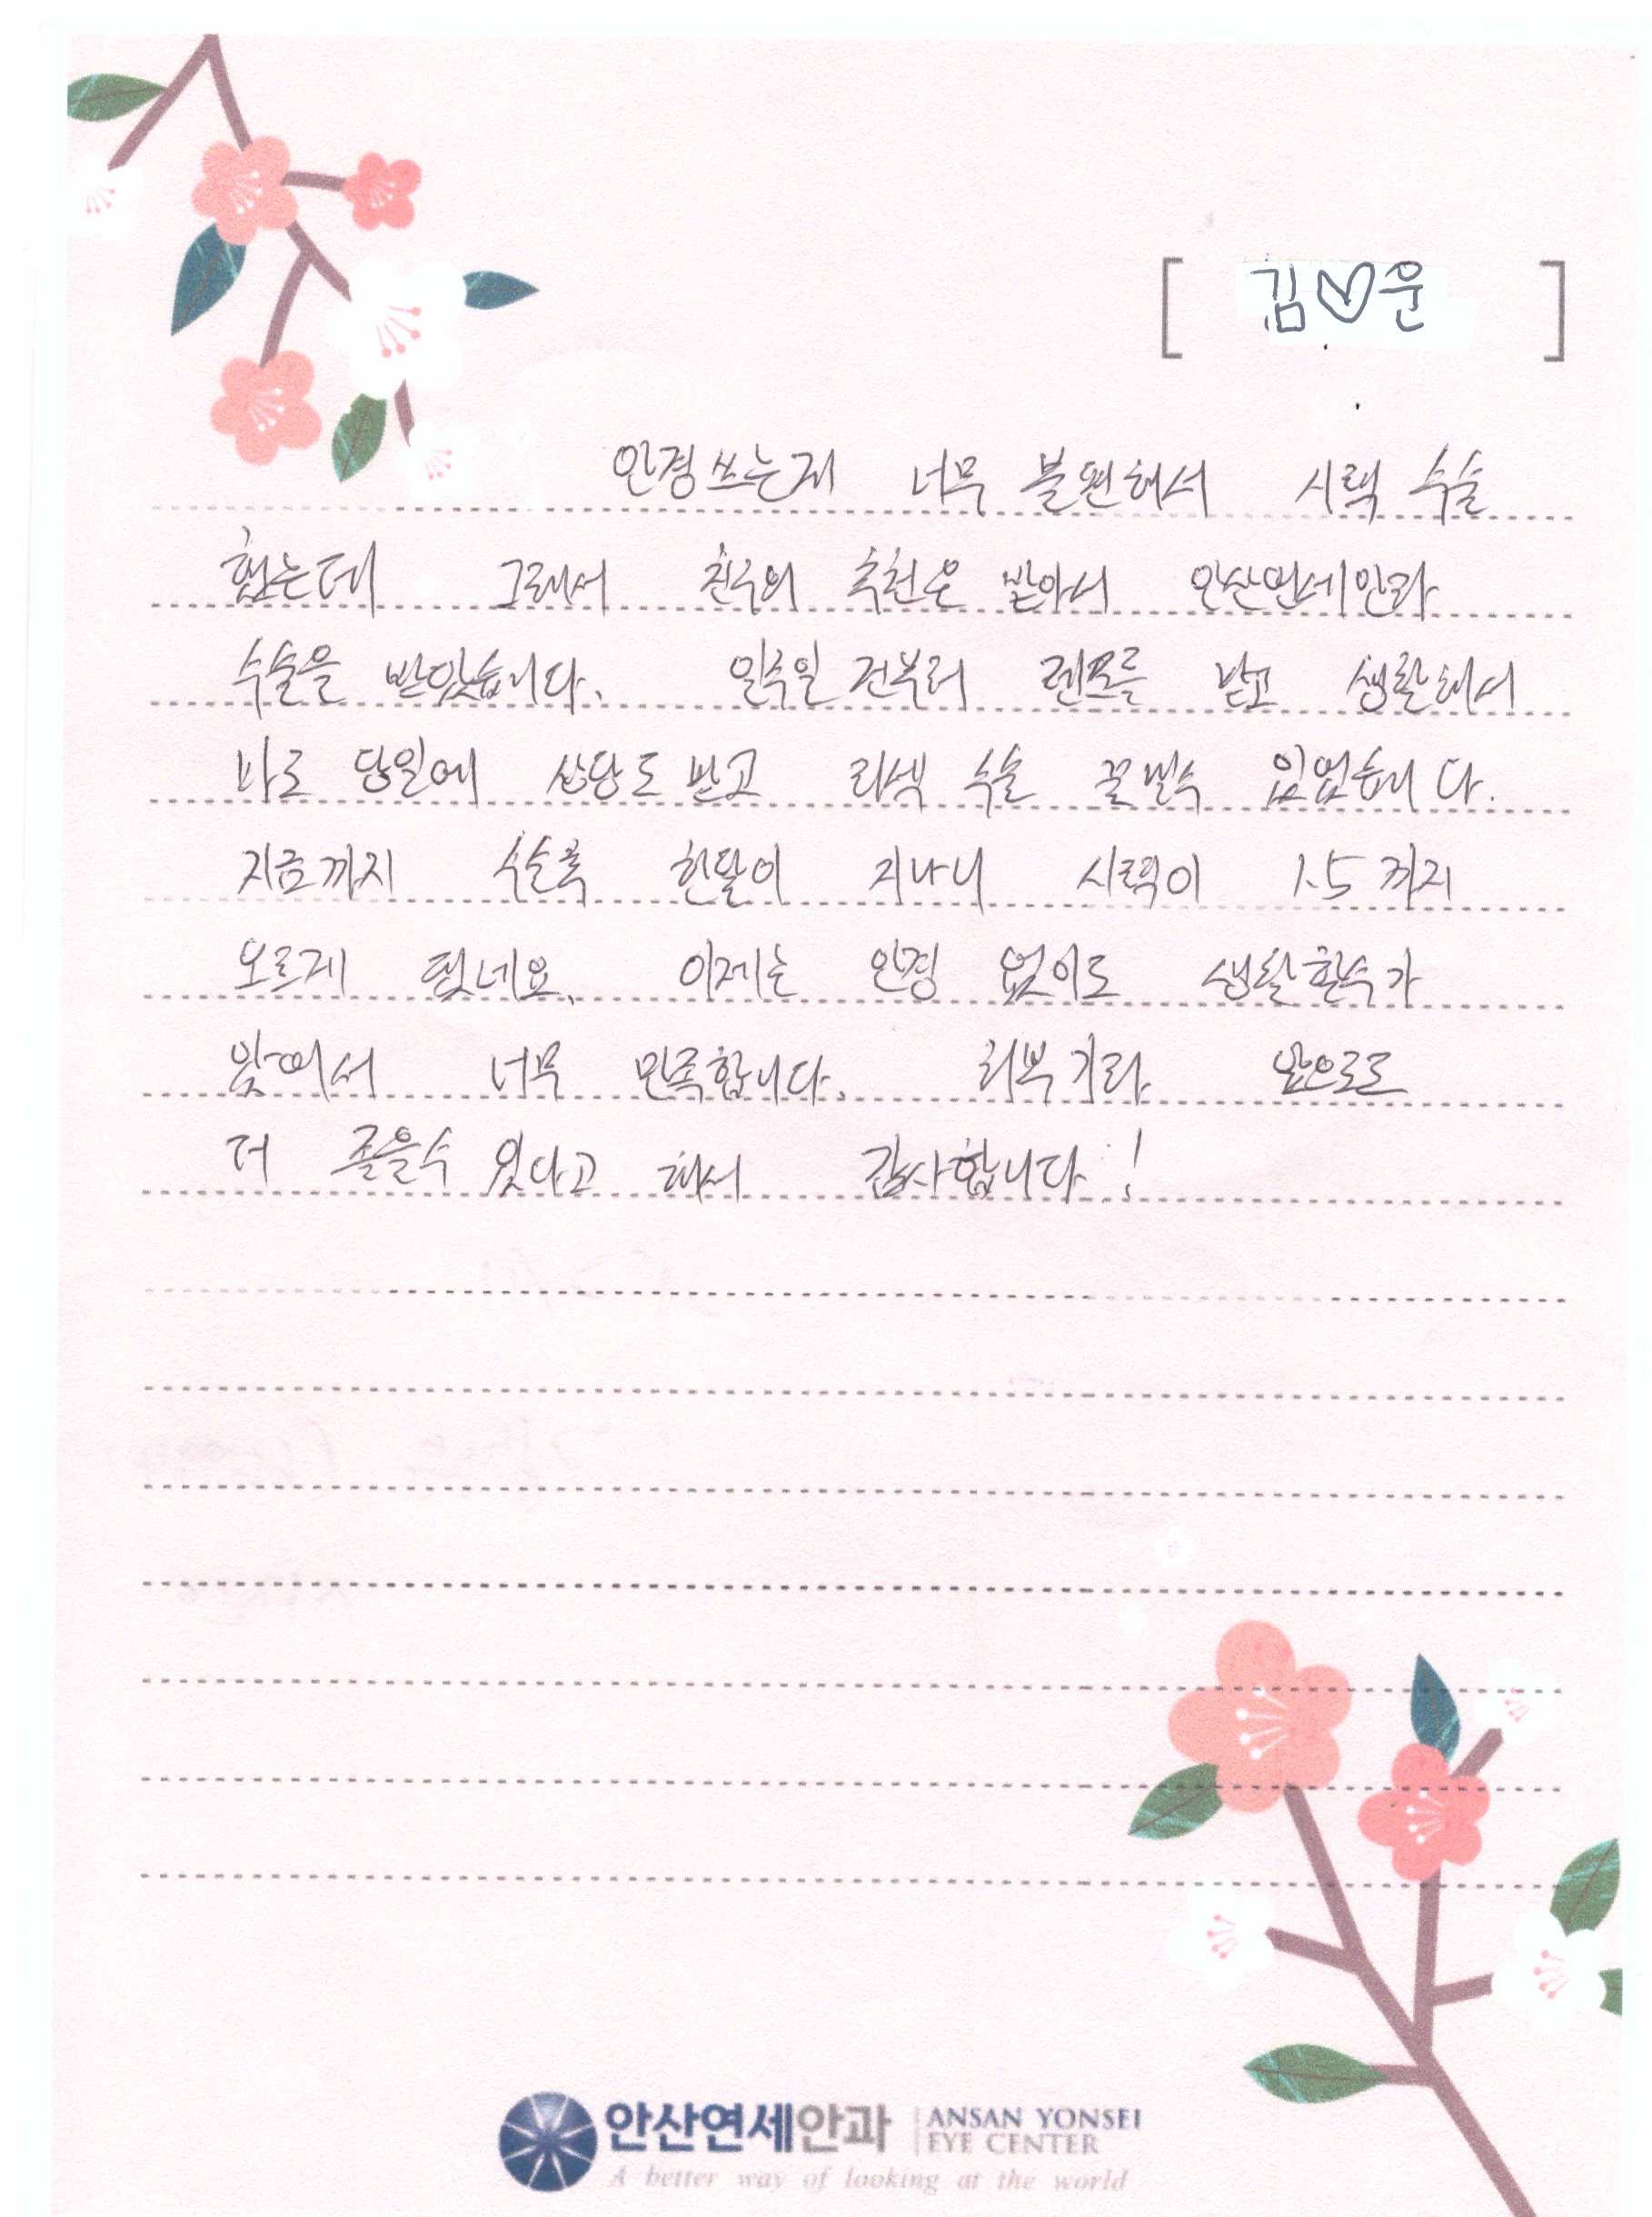 김♡운
안경쓰는게 너무 불편해서 시력 수술
했는데 그래서 친구의 추천은 받아서 안산연세안과
수술을 받았습니다. 일주일 전부터 렌즈를 빼고 생활해서
바로 당일에 상담도 받고 라섹 수술 할 수 있었습니다.
지금까지 수술후 한달이 지나니 시력이 1.5 까지
오르게 됐네요. 이제는 안경 없이도 생활할수가
있어서 너무 만족합니다. 회복기라 앞으로도
더 좋을수 있다고 해서 감사합니다!
안산연세안과 ANSAN YONSEI
EYE CENTER
A better way of looking at the world